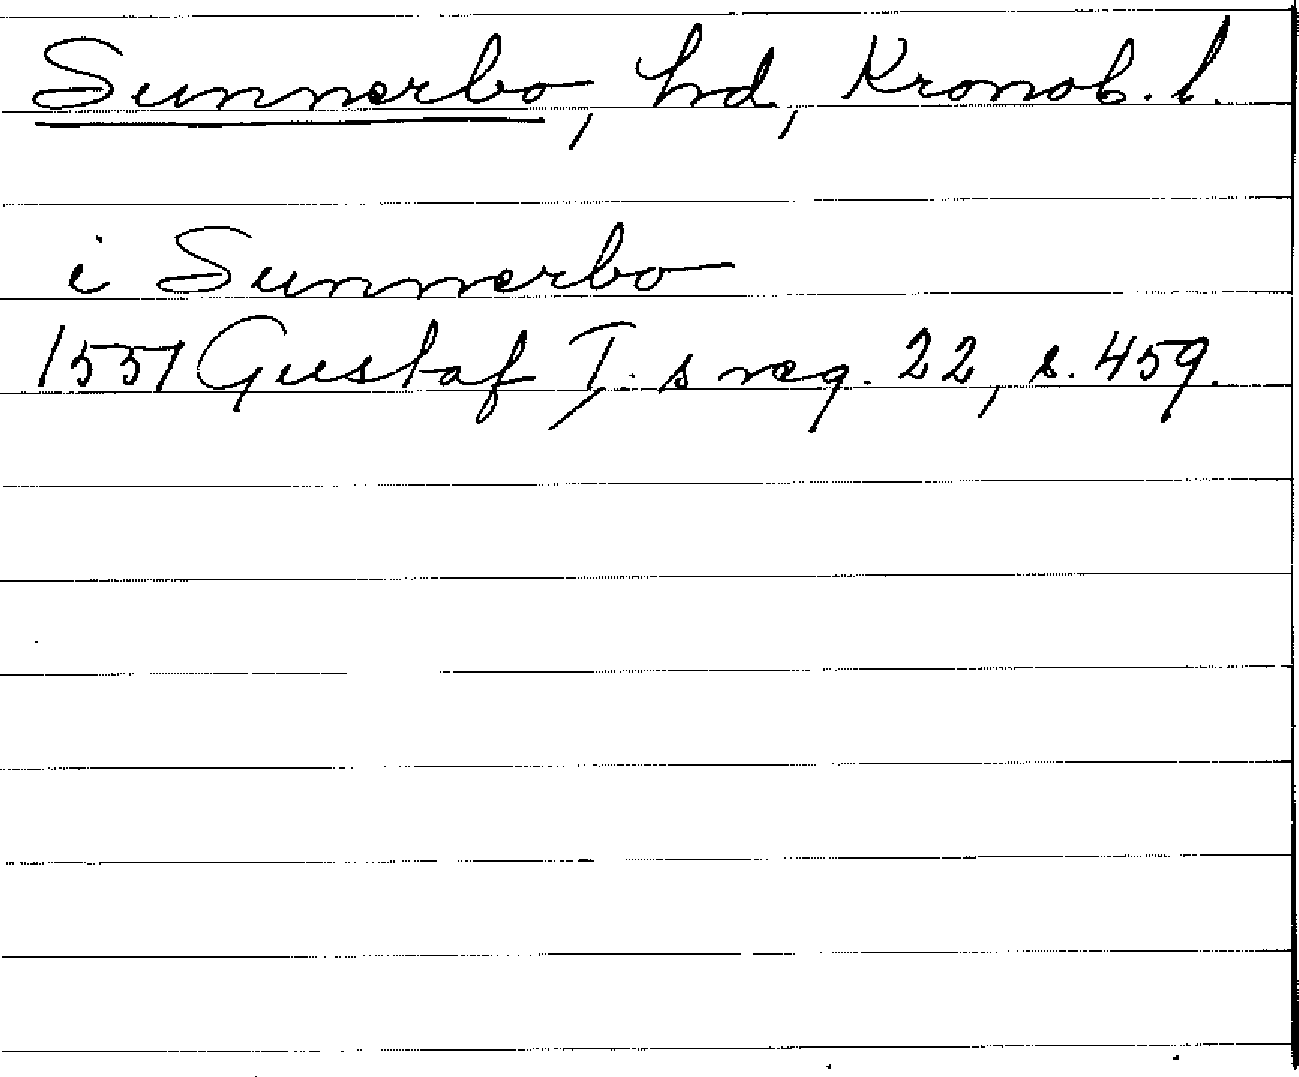 Sunnerbo, hd, Kronob. l.
i Sunnerbo
1551 Gustaf I:s reg. 22, s. 459.